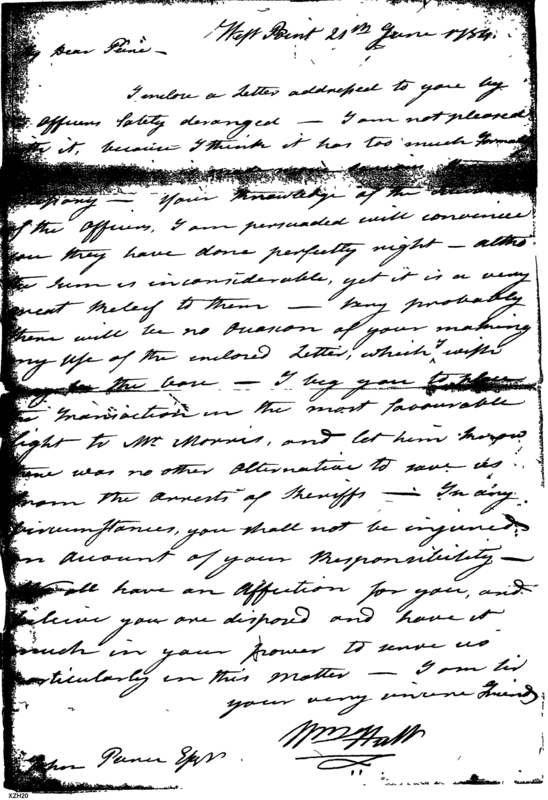 West Point 21th June 1784.
My Dear Peirce —
I inclose a Letter addressed to you by
Officers lately deranged — I am not pleased
it, because I think it has too much
— Your Knowledge of the
of the Officers, I am persuaded will convince
you they have done perfectly right — altho'
the Sum is inconsiderable, yet it is a very
great Releif to them — Very probably
there will be no Occasion of your making
any Use of the inclosed Letter, which I wish
the case — I beg you to place
Transaction in the most favourable
light to Mr Morris, and let him know
was no other Alternative to save us
from the Arrests of Sheriffs — In any
Circumstances, you shall not be injured
on Account of your Responsibility —
all have an Affection for you, and
beleive you are disposed and have it
much in your power to serve us
particularly in this Matter — I am Sir
your very sincere Friend
Wm Hull
Esqr
XZH20